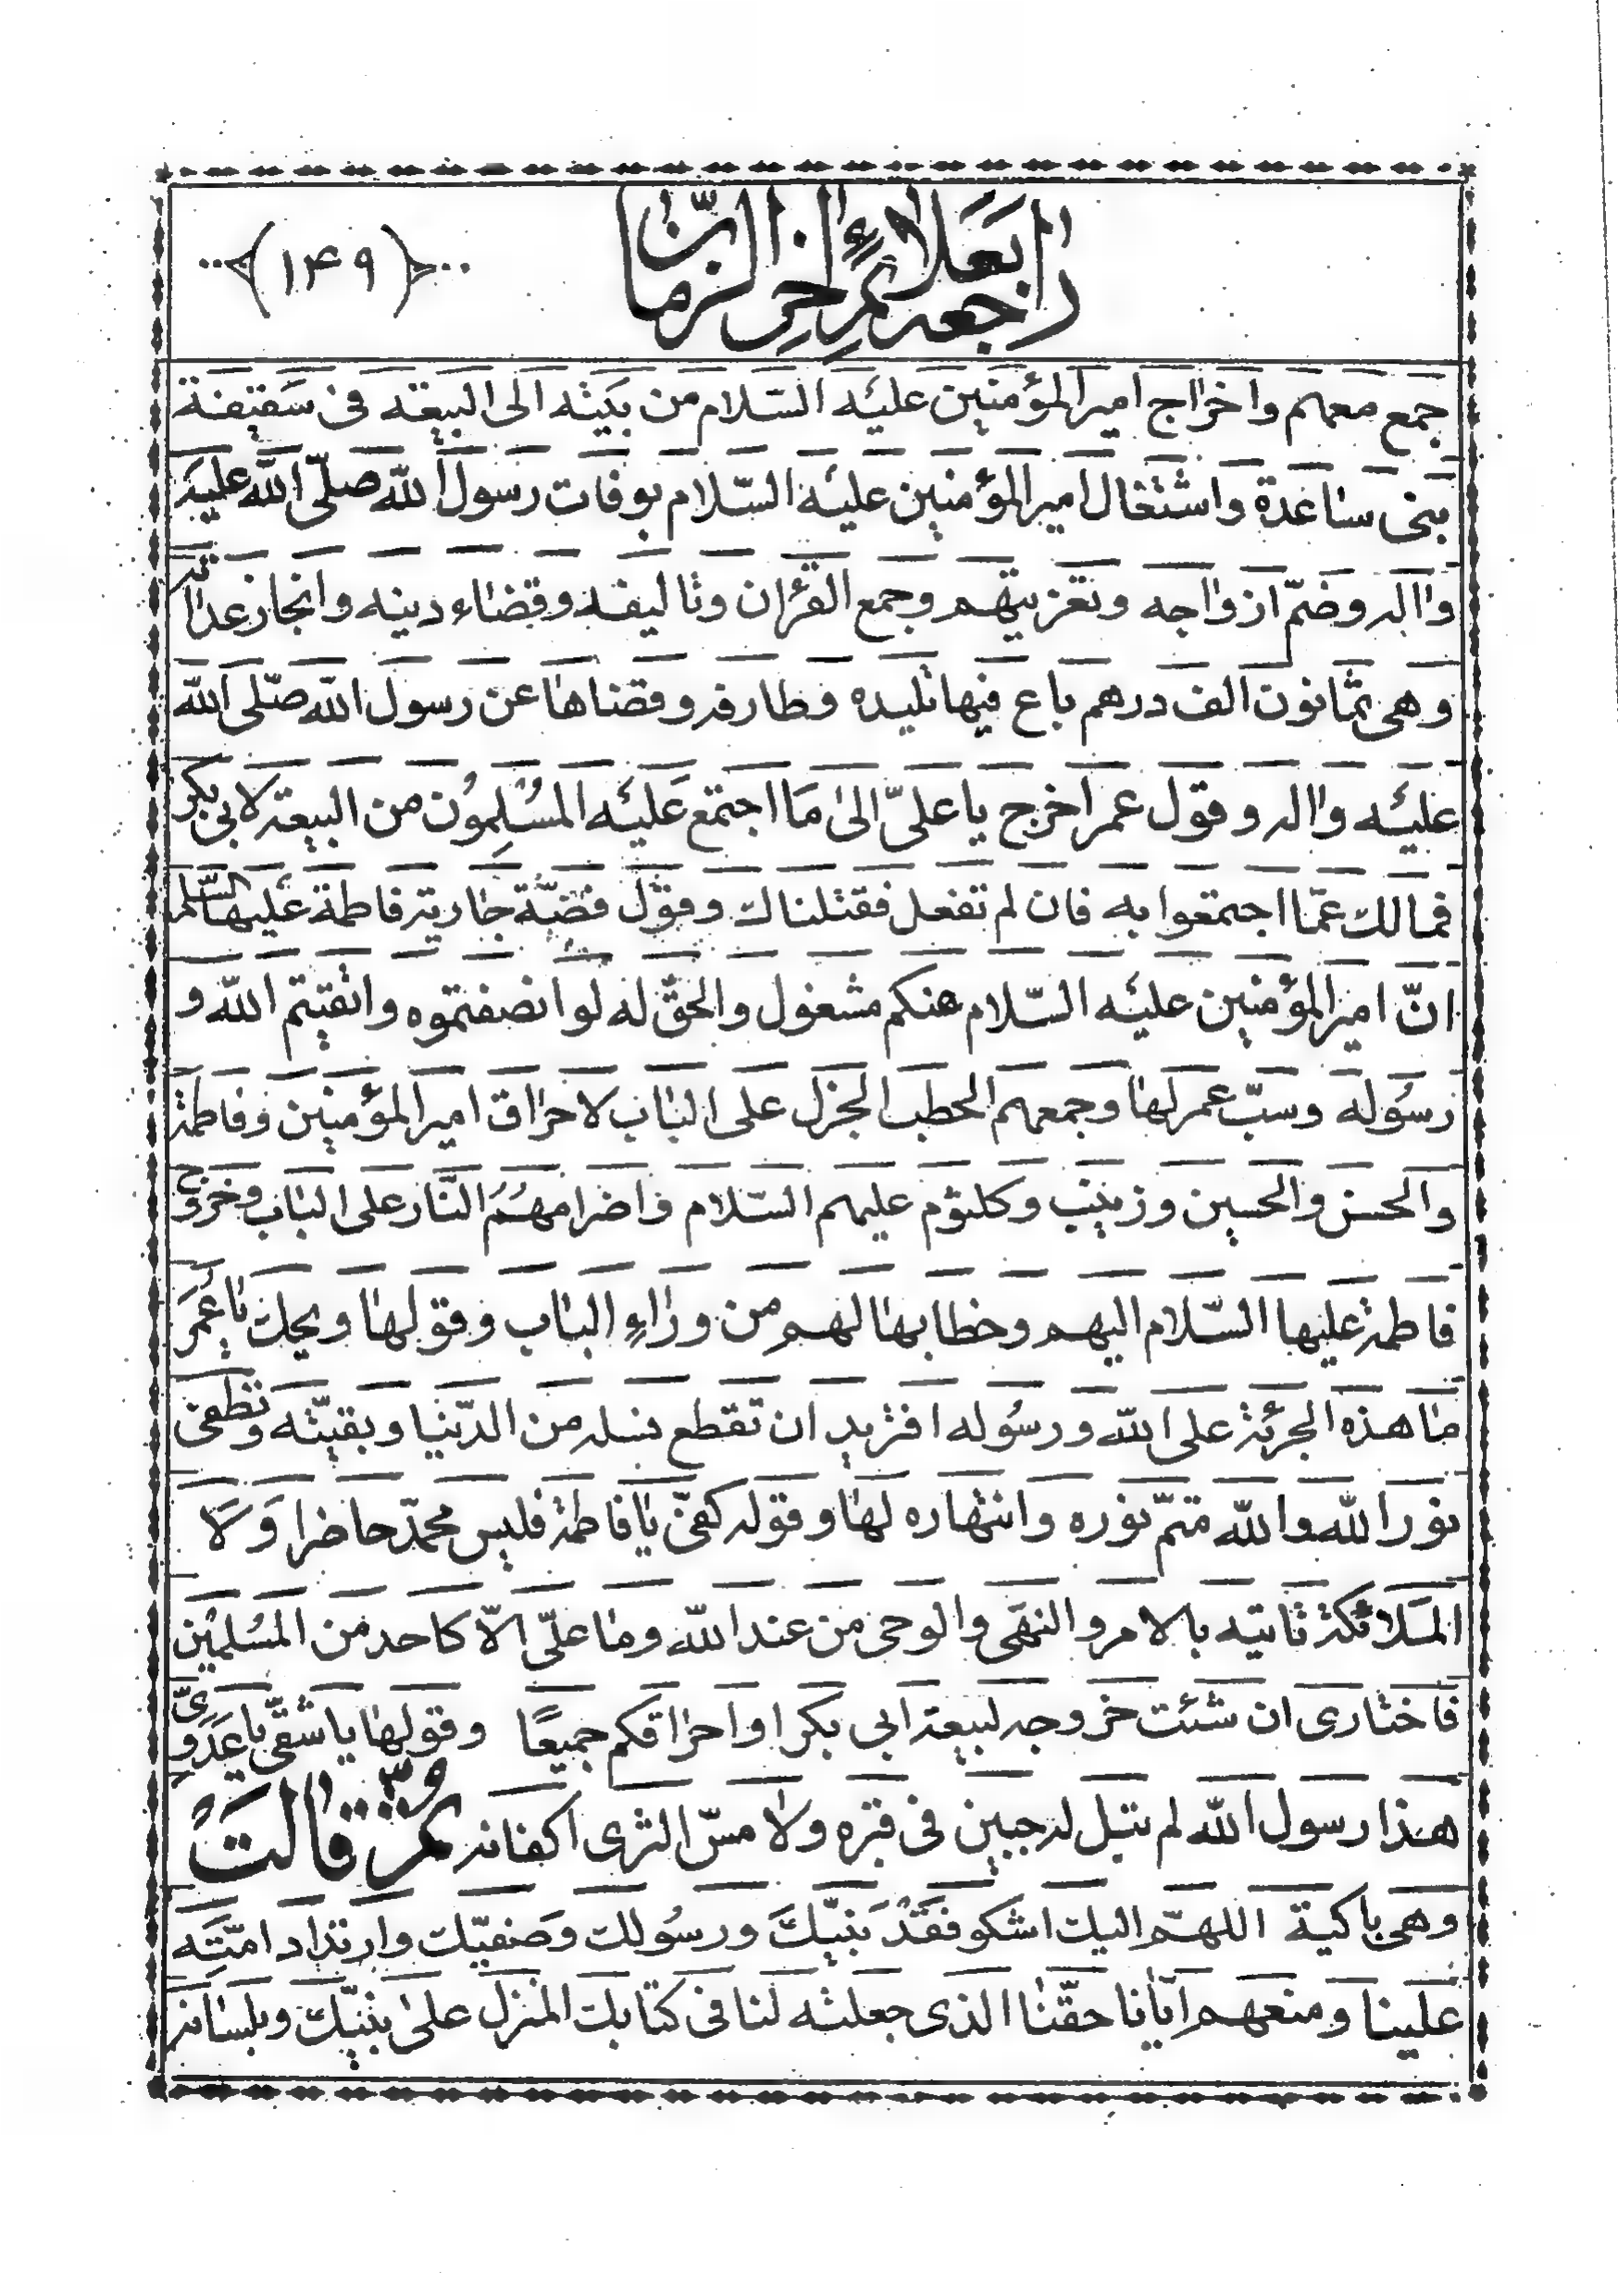 ﴿۱۴۹﴾
جمع معهم واخراج امیرالمؤمنین علیه السّلام من بیته الی البیعة فی سقیفة
بنی ساعدة واشتغال امیرالمؤمنین علیه السّلام بوفات رسول الله صلّی الله علیه
واله وضمّ ازواجه وتعزیتهم وجمع القرءان وتالیفه وقضاء دینه وانجاز عداته
وهی ثمانون الف درهم باع فیها تلیده وطارفه وقضاها عن رسول الله صلّی الله
علیه واله وقول عمر اخرج یا علیّ الی ما اجتمع علیه المسلمون من البیعة لابی بکر
فمالك عمّا اجتمعوا به فان لم تفعل فقتلناك وقول فضّة جاریة فاطمة علیها السّلم
انّ امیرالمؤمنین علیه السّلام عنکم مشغول والحقّ له لو انصفتموه واتقیتم الله و
رسوله وسبّ عمر لها وجمعهم الحطب الجزل علی الباب لاحراق امیرالمؤمنین وفاطمة
والحسن والحسین وزینب وکلثوم علیهم السّلام واضرامهم النّار علی الباب وخروج
فاطمة علیها السّلام الیهم وخطابها لهم من وراء الباب وقولها ویحك یا عمر
ما هذه الجرئة علی الله ورسوله افترید ان تقطع نسله من الدّنیا وبقیّته وتطفی
نور الله والله متمّ نوره وانتهاره لها وقوله کفیّ یا فاطمة فلیس محمّد حاضرا ولا
الملائکة ثابتیه بالامر والنهی والوحی من عند الله وما علیّ الّا کاحد من المسلمین
فاختاری ان شئت خروجه لبیعة ابی بکر او احراقکم جمیعًا وقولها یا شقیّ یا عدویّ
هذا رسول الله لم تبل له جبین فی قبره ولا مسّ الثری اکفانه ثمّ قالت
وهی باکیة اللهمّ الیك اشکو فقد نبیّك ورسولك وصفیّك وارتداد امّته
علینا ومنعهم ایانا حقّنا الذی جعلته لنا فی کتابك المنزل علی نبیّك وبلسانه